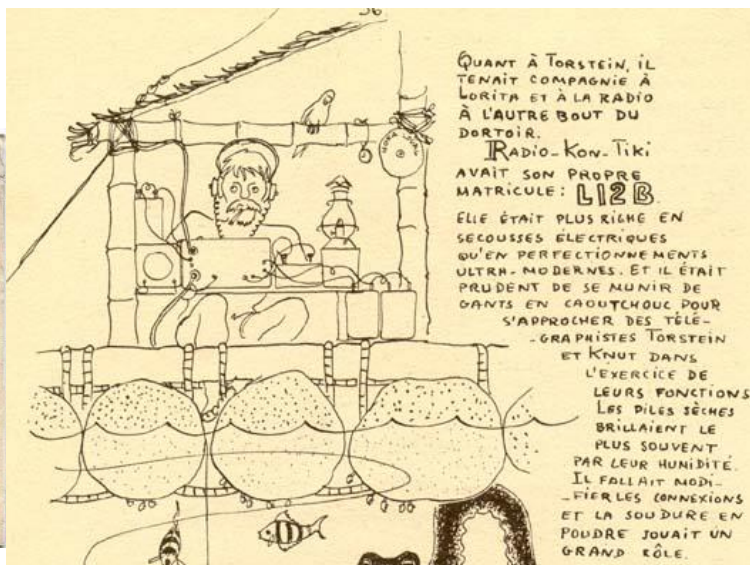 36
QUANT À TORSTEIN, IL
TENAIT COMPAGNIE À
LORITA ET À LA RADIO
À L'AUTRE BOUT DU
DORTOIR.
RADIO-KON-TIKI
AVAIT SON PROPRE
MATRICULE: LI2B.
ELLE ÉTAIT PLUS RICHE EN
SECOUSSES ÉLECTRIQUES
QU'EN PERFECTIONNEMENTS
ULTRA-MODERNES. ET IL ÉTAIT
PRUDENT DE SE MUNIR DE
GANTS EN CAOUTCHOUC POUR
S'APPROCHER DES TÉLÉ-
-GRAPHISTES TORSTEIN
ET KNUT DANS
L'EXERCICE DE
LEURS FONCTIONS
LES PILES SÈCHES
BRILLAIENT LE
PLUS SOUVENT
PAR LEUR HUMIDITÉ.
IL FALLAIT MODI-
-FIER LES CONNEXIONS
ET LA SOUDURE EN
POUDRE JOUAIT UN
GRAND RÔLE.